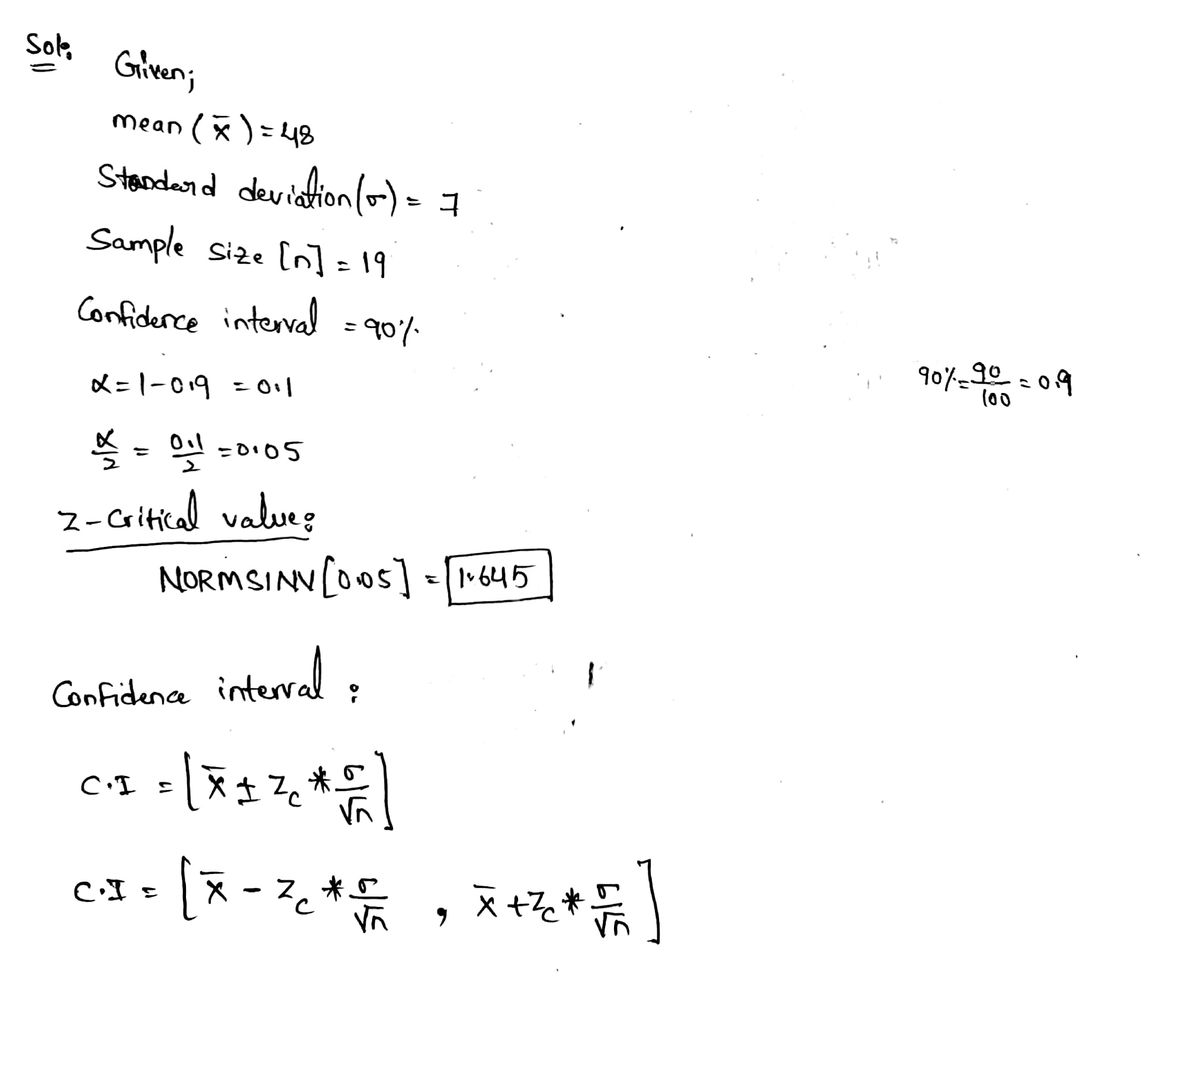 Sol:
Given;
mean (x̄) = 48
Standard deviation (σ) = 7
Sample size [n] = 19
Confidence interval = 90%
α = 1 - 0.9 = 0.1
90% = 90/100 = 0.9
α/2 = 0.1/2 = 0.05
Z-Critical value:
NORMSINV[0.05] = 1.645
Confidence interval :
C.I = [x̄ ± Zc * σ/√n]
C.I = [x̄ - Zc * σ/√n , x̄ + Zc * σ/√n]